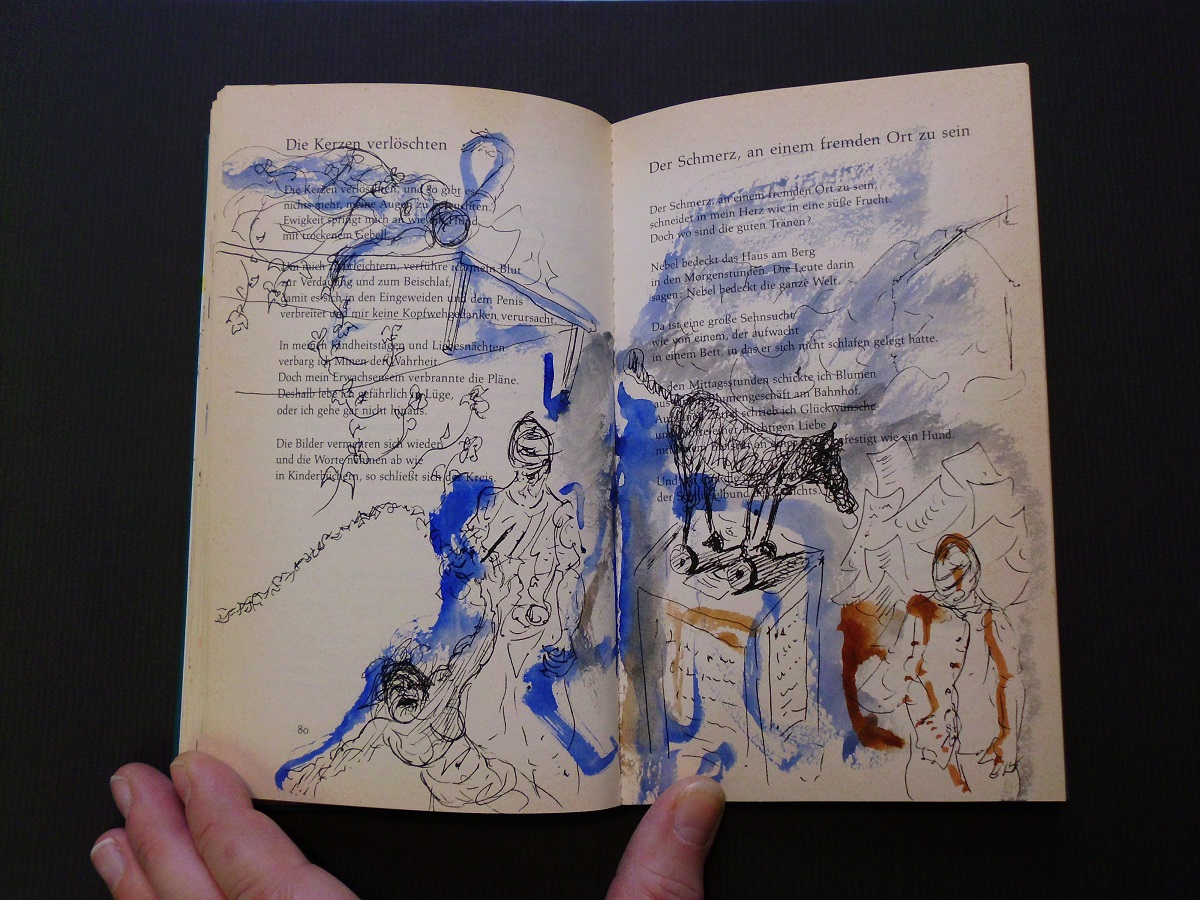 Die Kerzen verlöschten
Die Kerzen verlöschten, und so gibt es
nichts mehr, meine Augen zu beleuchten.
Ewigkeit springt mich an wie ein Hund
mit trockenem Gebell.
Um mich zu erleichtern, verführe ich mein Blut
zur Verdauung und zum Beischlaf,
damit es sich in den Eingeweiden und dem Penis
verbreitet und mir keine Kopfwehgedanken verursacht.
In meinen Kindheitstagen und Liebesnächten
verbarg ich Minen der Wahrheit.
Doch mein Erwachsensein verbrannte die Pläne.
Deshalb lebe ich gefährlich in Lüge,
oder ich gehe gar nicht hinaus.
Die Bilder vermehren sich wieder
und die Worte nehmen ab wie
in Kinderbüchern, so schließt sich der Kreis.
80
Der Schmerz, an einem fremden Ort zu sein
Der Schmerz, an einem fremden Ort zu sein,
schneidet in mein Herz wie in eine süße Frucht.
Doch wo sind die guten Tränen?
Nebel bedeckt das Haus am Berg
in den Morgenstunden. Die Leute darin
sagen: Nebel bedeckt die ganze Welt.
Da ist eine große Sehnsucht
wie von einem, der aufwacht
in einem Bett, in das er sich nicht schlafen gelegt hatte.
In den Mittagsstunden schickte ich Blumen
aus Blumengeschäft am Bahnhof.
schrieb ich Glückwünsche
einer flüchtigen Liebe
mit an wie ein Hund.
Und
der